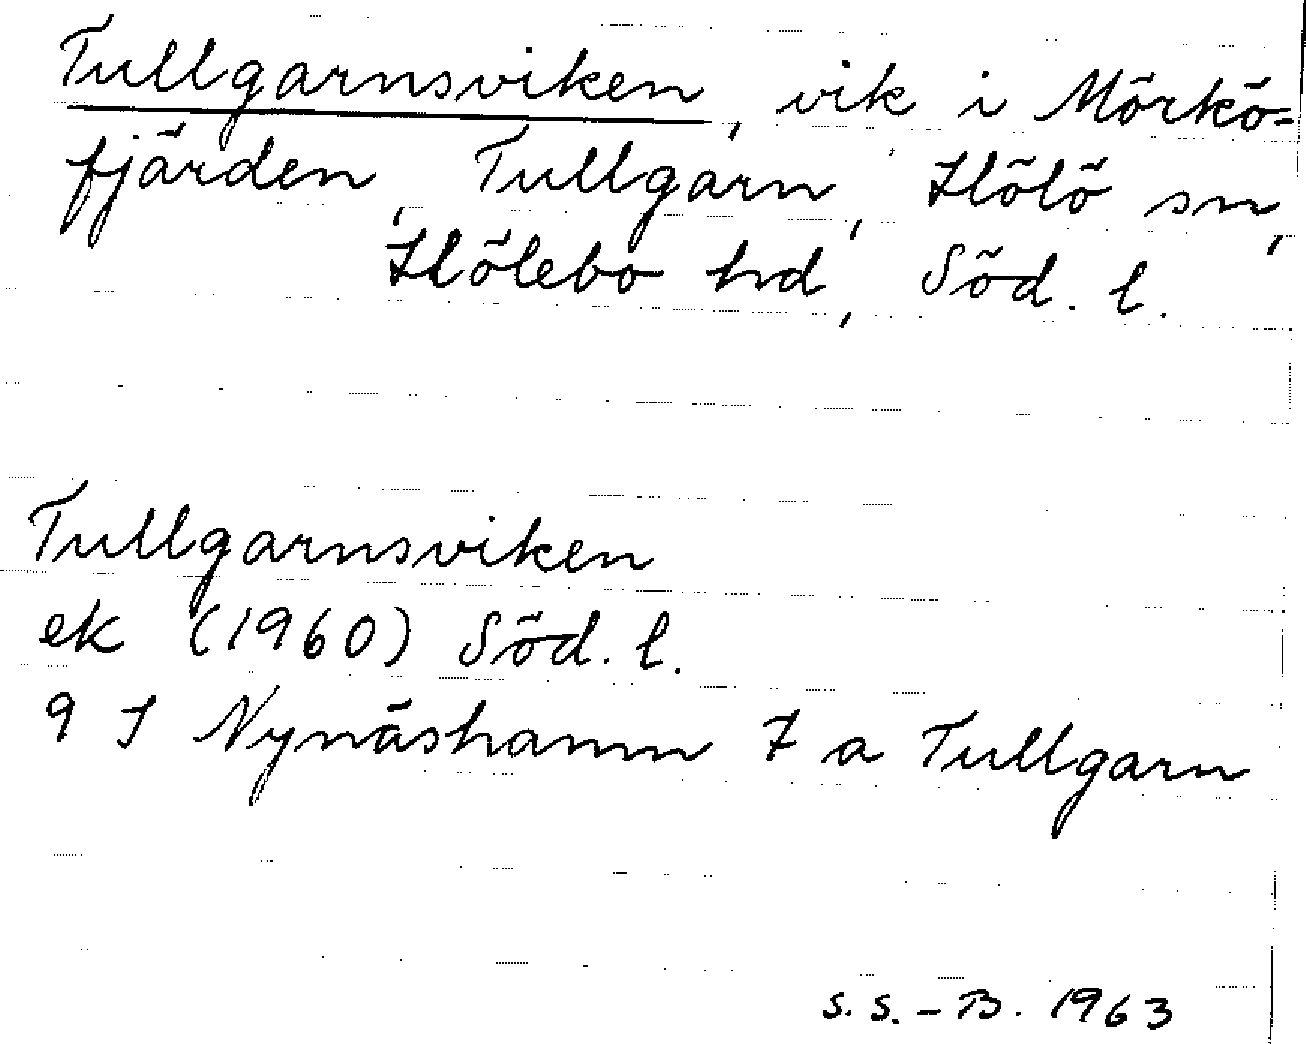 Tullgarnsviken, vik i Mörkö=
fjärden, Tullgarn, Hölö sn,
Hölebo hd, Söd. l.
Tullgarnsviken
ek (1960) Söd. l.
9 I Nynäshamn 7 a Tullgarn
S. S. - B. 1963